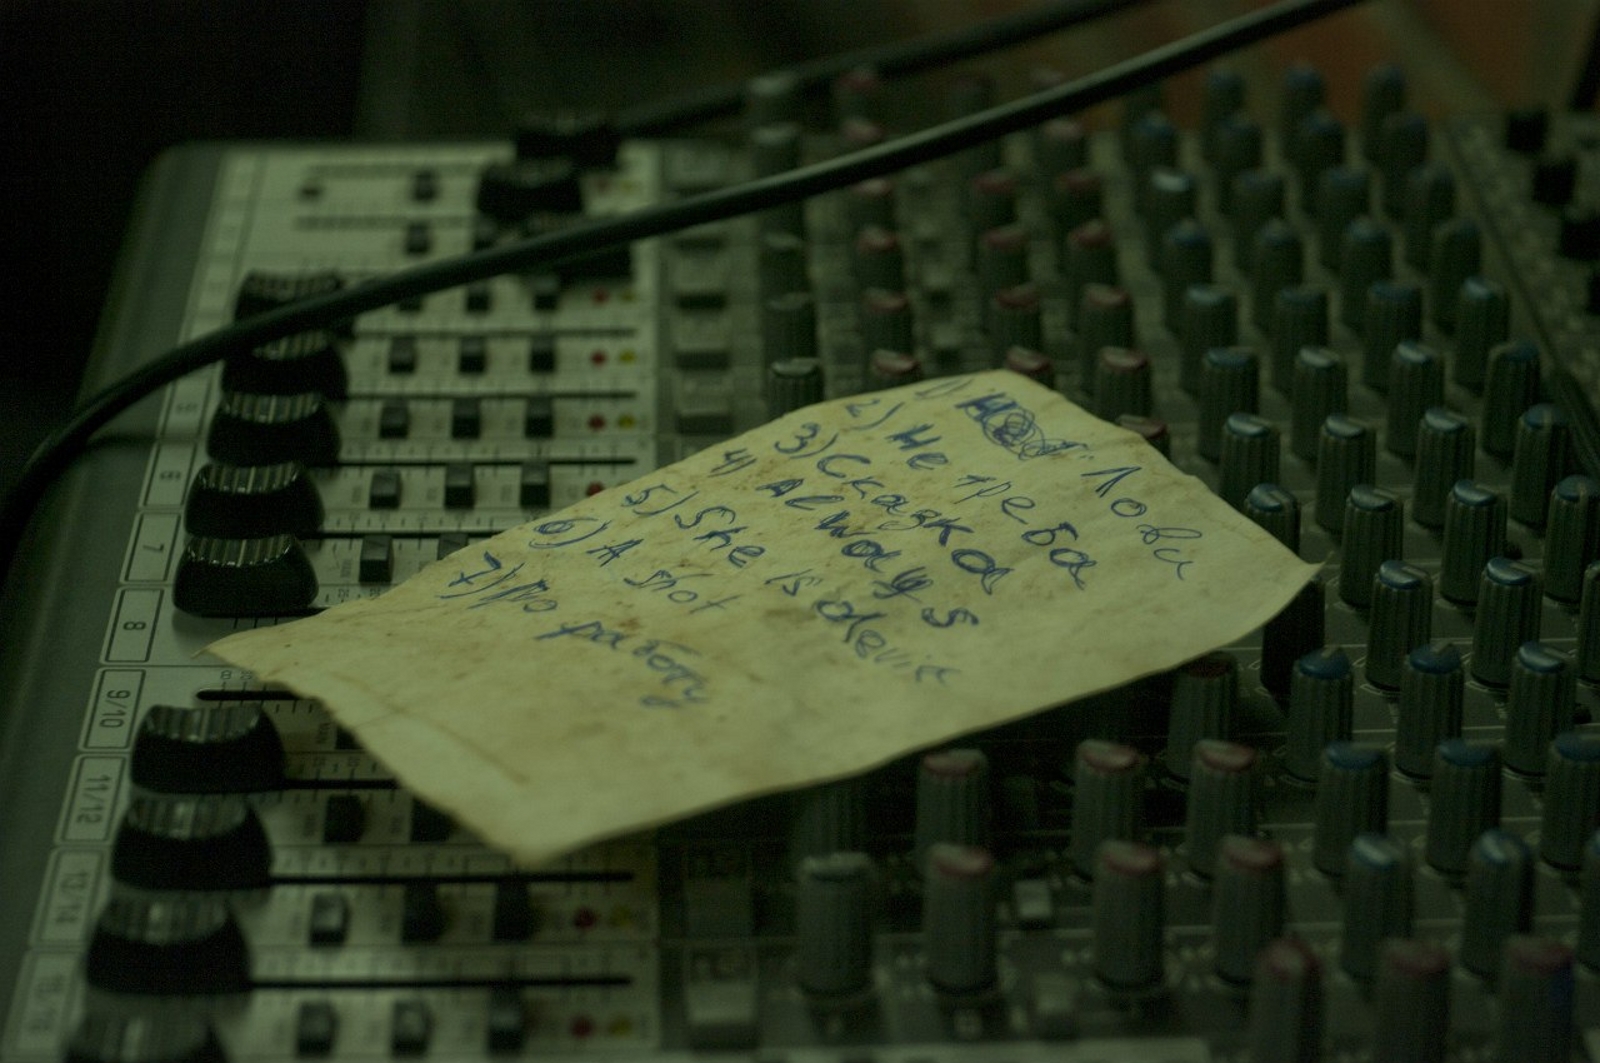 1) Лови
2) Не треба
3) Сказка
4) Always
5) She is devil
6) A shot
7) Про работу
7
8
9/10
11/12
13/14